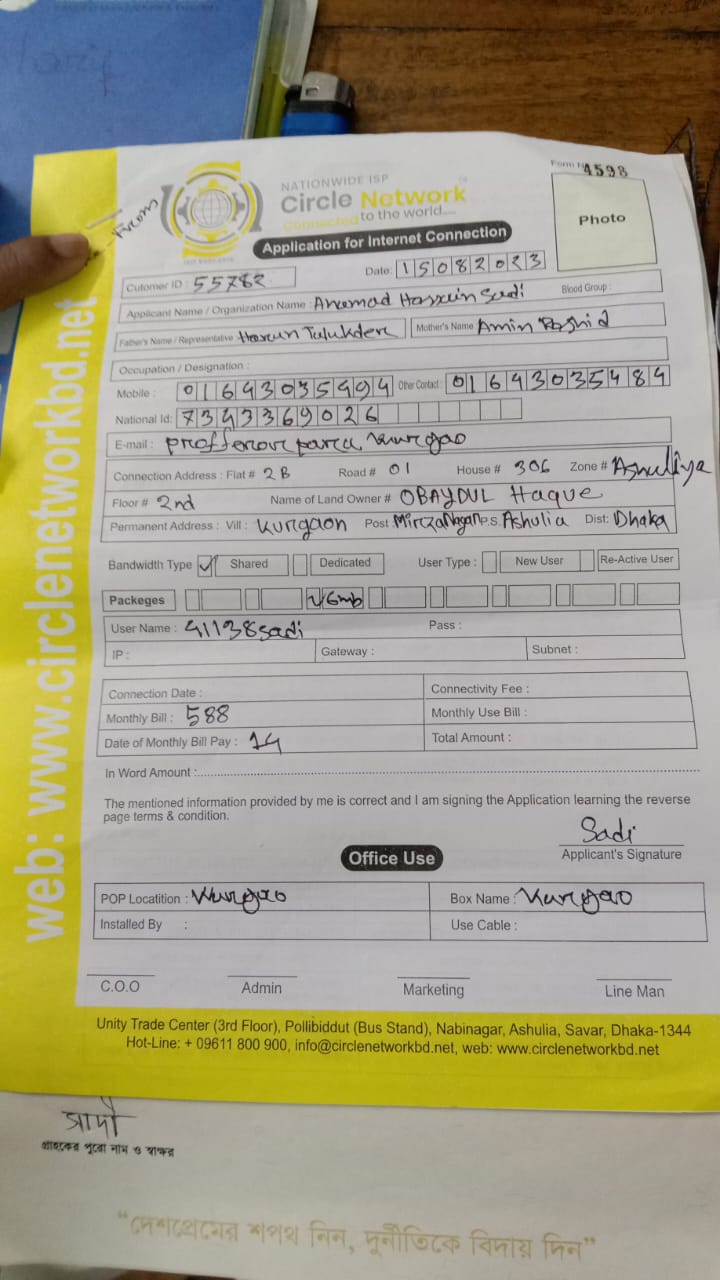 NATIONWIDE ISP
Circle Network
Connected to the world....
Application for Internet Connection
Form N 4598
Photo
From
Cutomer ID : 55782
Date: 15082023
Applicant Name / Organization Name : Ahemad Hossein Sadi Blood Group :
Father's Name / Representative : Harun Talukder Mother's Name Amin Rashid
Occupation / Designation :
Mobile : 01643035494 Other Contact : 01643035484
National Id: 7343369026
E-mail : proffenor para kurgao
Connection Address : Flat # 2B Road # 01 House # 306 Zone # Ashuliya
Floor # 2nd Name of Land Owner # OBAYDUL Haque
Permanent Address : Vill : Kurgaon Post Mirzanagar P.S. Ashulia Dist: Dhaka
Bandwidth Type ✓ Shared Dedicated User Type : New User Re-Active User
Packeges 6mb
User Name : 41138sadi Pass :
IP : Gateway : Subnet :
Connection Date : Connectivity Fee :
Monthly Bill : 588 Monthly Use Bill :
Date of Monthly Bill Pay : 14 Total Amount :
In Word Amount :
The mentioned information provided by me is correct and I am signing the Application learning the reverse
page terms & condition.
Sadi
Applicant's Signature
Office Use
POP Locatition : Kurgao Box Name : Kurgao
Installed By : Use Cable :
C.O.O Admin Marketing Line Man
Unity Trade Center (3rd Floor), Pollibiddut (Bus Stand), Nabinagar, Ashulia, Savar, Dhaka-1344
Hot-Line: + 09611 800 900, info@circlenetworkbd.net, web: www.circlenetworkbd.net
web: www.circlenetworkbd.net
সাদী
গ্রাহকের পুরো নাম ও স্বাক্ষর
“দেশপ্রেমের শপথ নিন, দুর্নীতিকে বিদায় দিন”